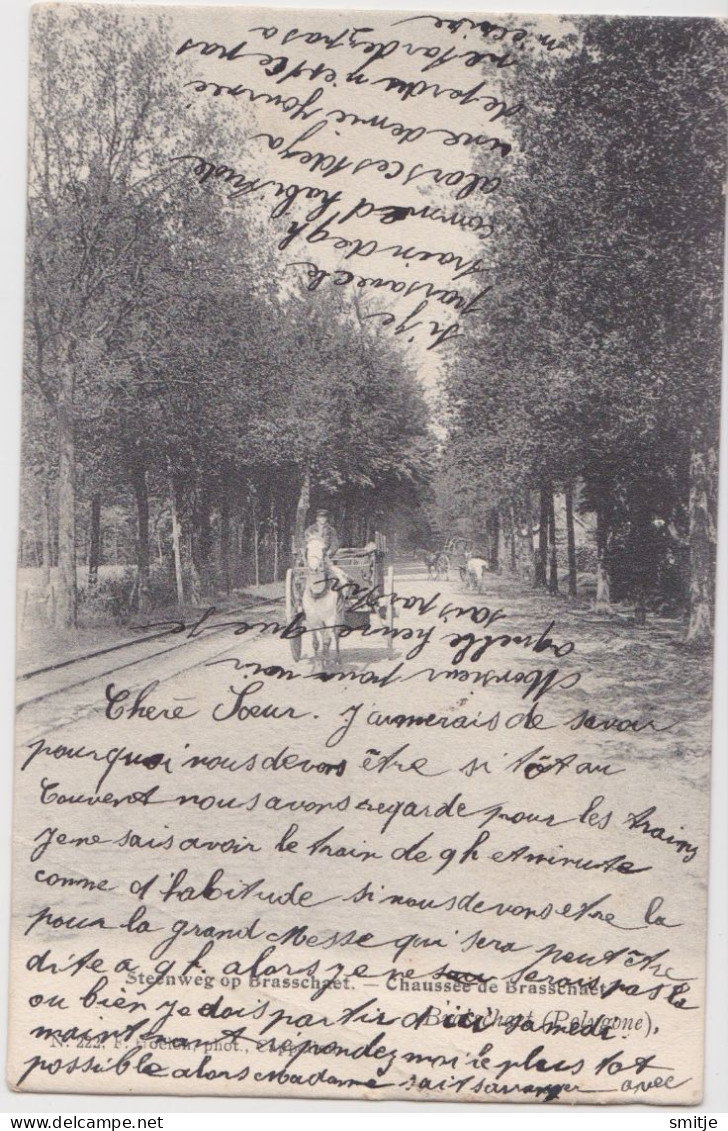 Chère Sœur. J'aimerais de savoir
pourquoi nous devons être si tôt au
Couvent nous avons regarde pour les trains
Je ne sais avoir le train de 9h et minute
comme d'habitude si nous devons etre la
pour la grand Messe qui sera peut être
dite a 9h. alors je ne serais pas la
ou bien je dois partir d'ici Samedi.
maintenant répondez moi le plus tot
possible alors Madame sait s'arranger avec
Monsieur pour voir
a quelle heure
que je sait partir
si je
pars avec le
train de 9h
comme d'habitude
alors c'est deja
une demie journée
de perdu n'est ce pas
ne tardez pas a
m'ecrire
Steenweg op Brasschaet. — Chaussée de Brasschaet
Brasschaet (Polygone).
N. 222. F. Hoelen, phot., Cappellen
smitje
Delcampe.net